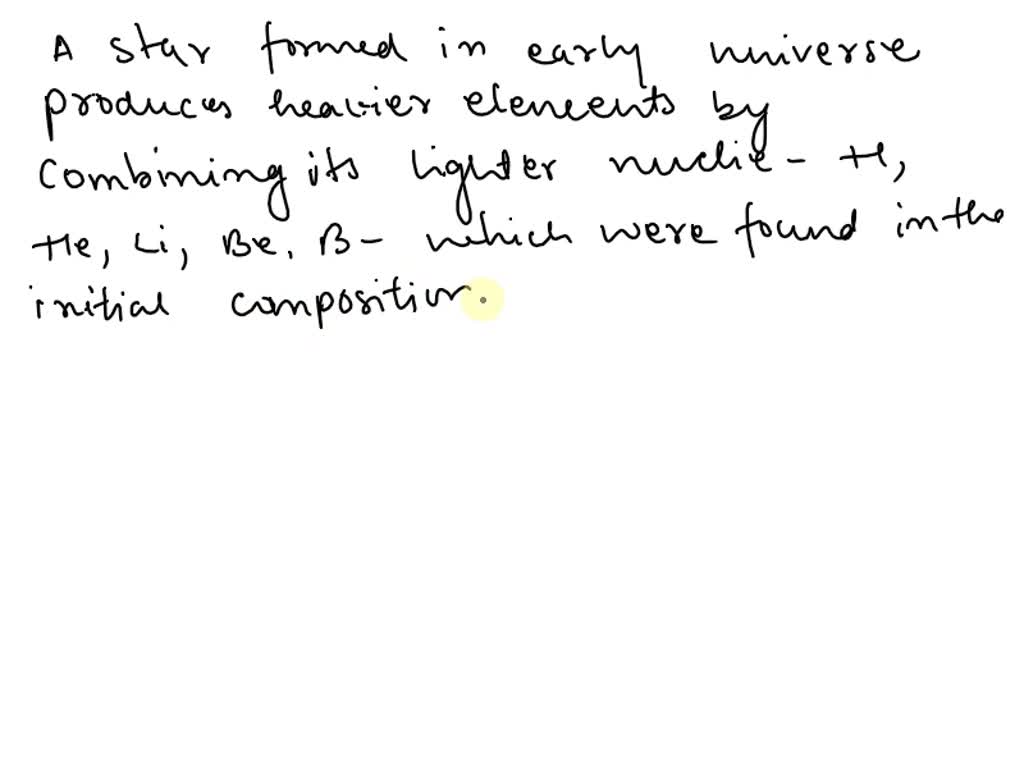 A star formed in early universe
produces heavier elements by
combining its lighter nuclie - H,
He, Li, Be, B - which were found in the
initial composition.